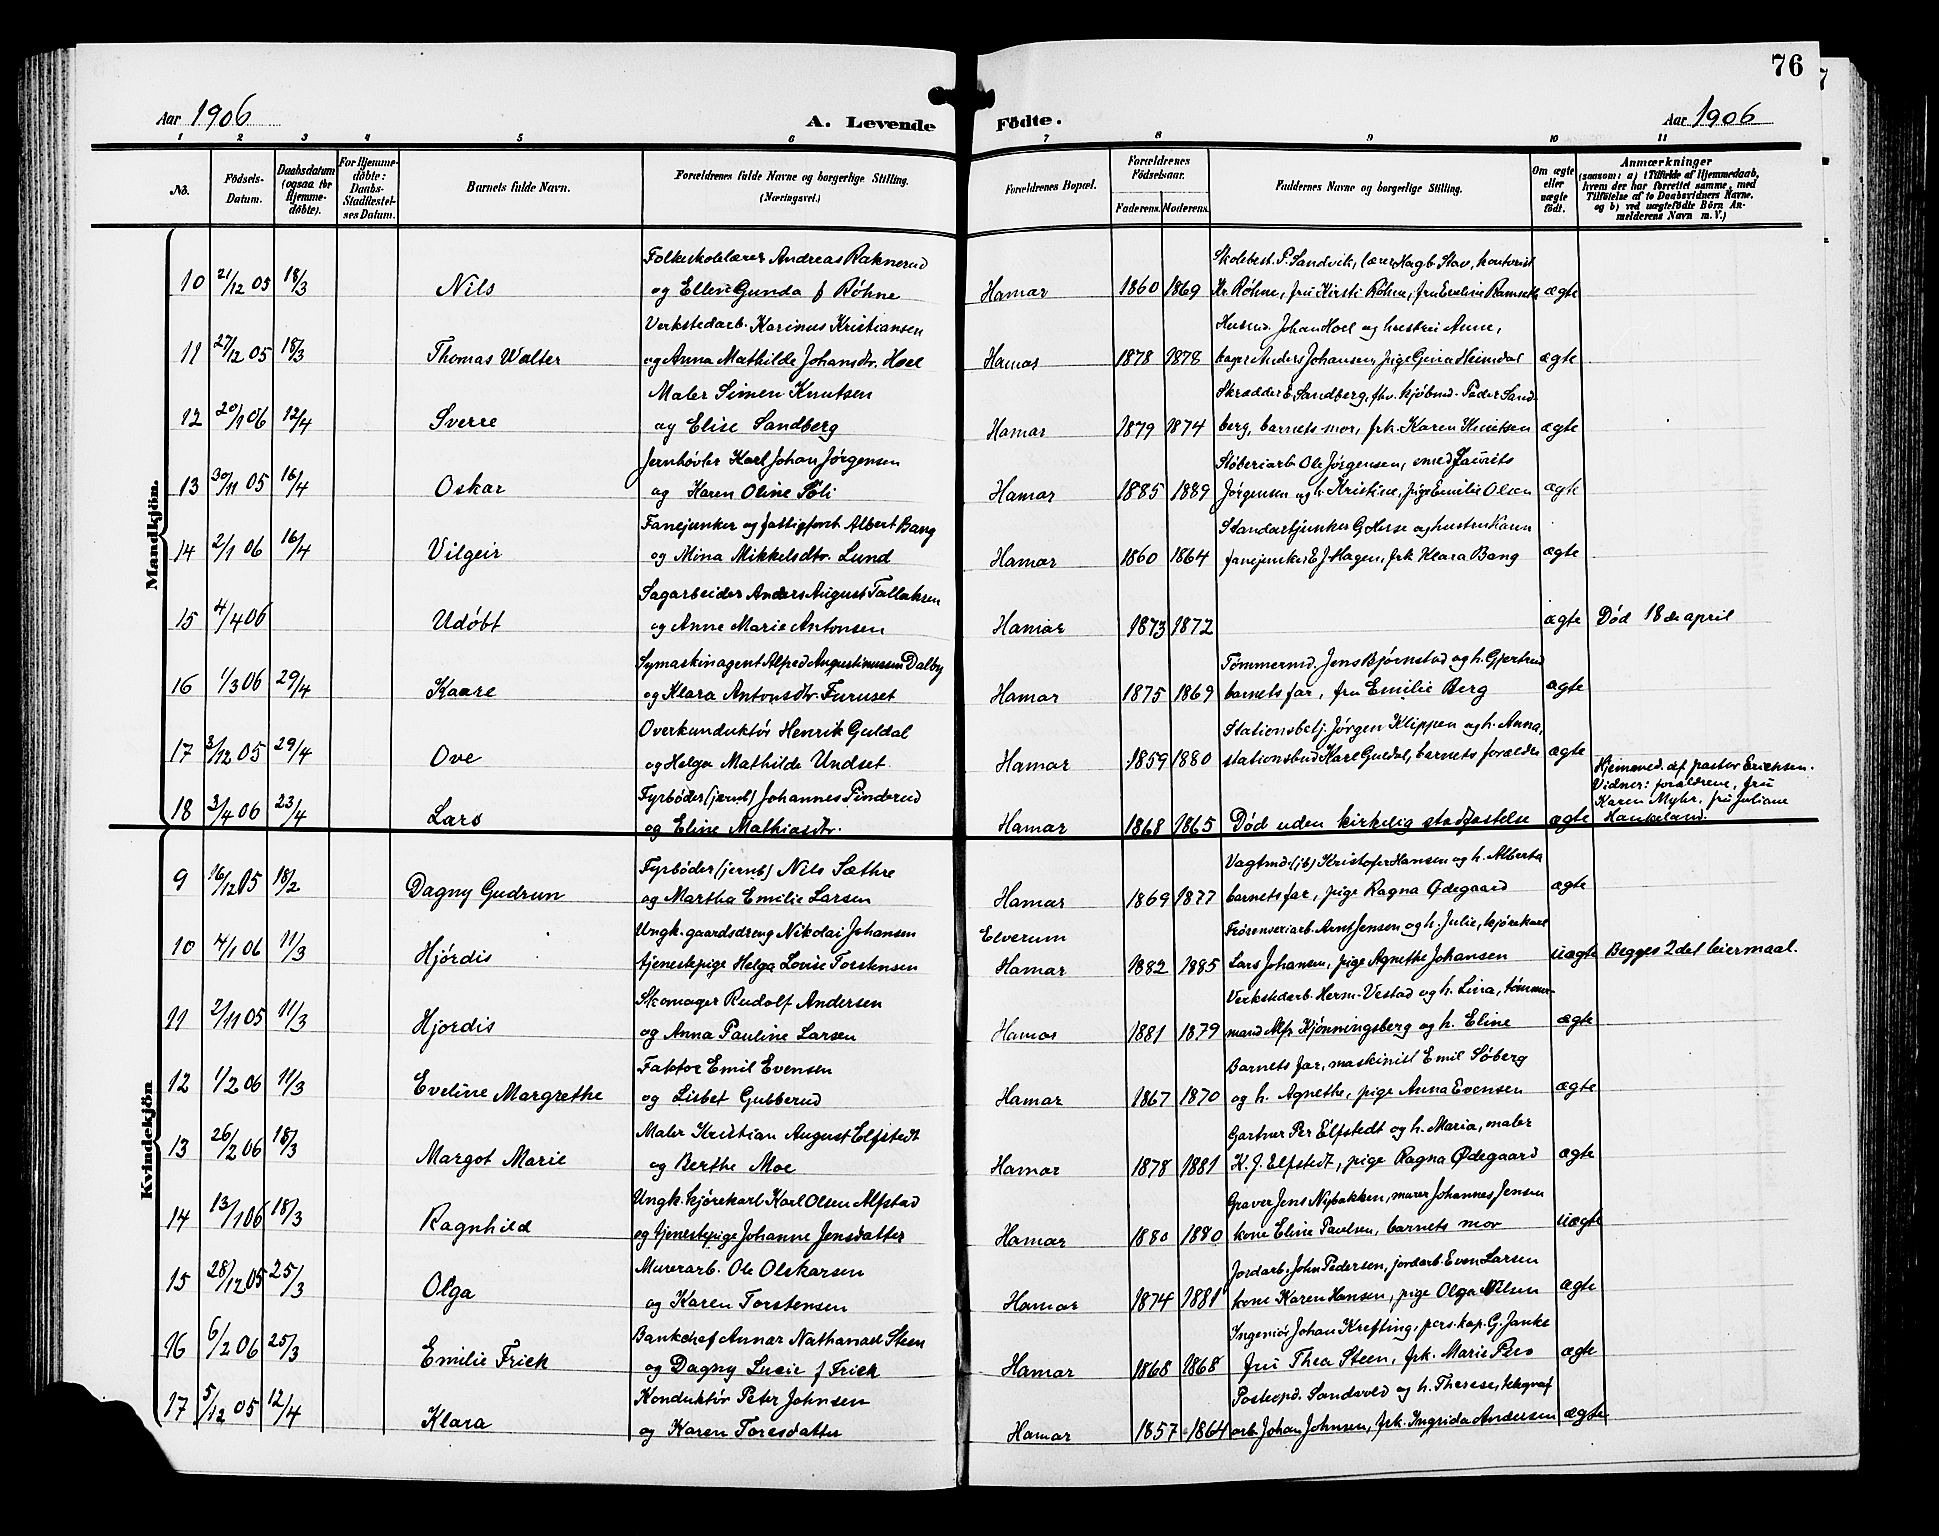 76
Aar 1906
A. Levende Födte.
Aar 1906
1 2 3 4 5 6 7 8 9 10 11
No.
Födsels-Datum.
Daabsdatum (ogsaa for Hjemme-döbte).
For Hjemme-döbte: Daabs-Stadfæstel-ses Datum.
Barnets fulde Navn.
Forældrenes fulde Navne og borgerlige Stilling. (Næringsvei.)
Forældrenes Bopæl.
Forældrenes Födselsaar.
Faderens. Moderens.
Faddernes Navne og borgerlige Stilling.
Om ægte eller uægte födt.
Anmærkninger
(saasom: a) i Tilfælde af Hjemmedaab,
hvem der har forrettet samme, med
Tilföielse af to Daabsvidners Navne,
og b) ved uægtefödte Börn An-
melderens Navn m. V.)
Mandkjön.
Folkeskolelærer Andreas Raknerud Skolebest. P. Sandvik, lærer Hagb. Stav, kontorist
10 21/12 05 18/3 Nils og Ellen Gunda f Røhne Hamar 1860 1869 Kr. Røhne, fru Kirsti Røhne, fru Eveline Ramseth ægte
Verkstedarb. Karinus Kristiansen Husmd. Johan Hoel og hustru Anne,
11 27/12 05 18/3 Thomas Walter og Anna Mathilde Johansdtr. Hoel Hamar 1878 1878 bager Anders Johansen, pige Gina Heimdal ægte
Maler Simen Knutsen Skrædder E Sandberg, fhv. kjøbmd. Peder Sand-
12 20/1 06 12/4 Sverre og Elise Sandberg Hamar 1879 1874 berg, barnets mor, frk. Karen Knutsen ægte
Jernhøvler Karl Johan Jørgensen Støberiarb. Ole Jørgensen, smed Laurits
13 30/11 05 16/4 Oskar og Karen Oline Söli Hamar 1885 1889 Jørgensen og h. Kristine, pige Emilie Olsen ægte
Fanejunker og fattigforst. Albert Bang Standartjunker G Herse og hustru Karen
14 2/1 06 16/4 Vilgeir og Mina Mikkelsdtr. Lund Hamar 1860 1864 fanejunker E J Hagen, frk Klara Bang ægte
Sagarbeider Anders August Tollaksen
15 4/4 06 Udöbt og Anne Marie Antonsen Hamar 1873 1872 ægte Död 18de april
Symaskinagent Alfred Augustinussen Dalby Tömmermd. Jens Bjørnstad og h. Gjertrud
16 1/3 06 29/4 Kaare og Klara Antonsdtr. Furuset Hamar 1875 1869 barnets far, fru Emilie Berg ægte
Overkunduktör Henrik Guldal Stationsbetj. Jörgen Klippen og h. Anna,
17 3/12 05 29/4 Ove og Helga Mathilde Undset Hamar 1859 1880 stationsbud Karl Guldal, barnets forældre ægte
Fyrbøder (jernb) Johannes Pinderud Hjemmed. af pastor Erichsen.
Vidner: forældrene, fru
Karen Myhr, fru Juliane
Haukeland.
18 3/4 06 23/4 Lars og Eline Mathiasdtr. Hamar 1868 1865 Död uden kirkelig stadfæstelse ægte
Kvindekjön
Fyrbøder (jernb) Nils Sæthre Vagtmd. (jb) Kristofer Hansen og h. Alberta
9 16/12 05 18/2 Dagny Gudrun og Martha Emilie Larsen Hamar 1869 1877 barnets far, pige Ragna Ødegaard ægte
Ungk. gaardsdreng Nikolai Johansen Elverum Arnt Jensen og h. Julie, kjørekarl
10 4/1 06 11/3 Hjördis tjenestepige Helga Lovise Torstensen Hamar 1882 1885 Lars Johansen, pige Agnethe Johansen uægte Begges 2det leiermaal.
Skomager Rudolf Andersen Verkstedarb. Herm. Vestad og h. Lina, tömmer-
11 2/11 05 11/3 Hjordis og Anna Pauline Larsen Hamar 1881 1879 mand Alfr. Kjønningsberg og h. Eline ægte
Faktor Emil Evensen Barnets far, maskinist Emil Söberg
12 1/2 06 11/3 Eveline Margrethe og Lisbet Gubberud Hamar 1867 1870 og h. Agnethe, pige Anna Evensen ægte
Maler Kristian August Elfstedt Gartner Per Elfstedt og h. Maria, maler
13 26/2 06 18/3 Margot Marie og Berthe Moe Hamar 1878 1881 K. J. Elfstedt, pige Ragna Ødegaard ægte
Ungk. kjörekarl Karl Olsen Alfstad Graver Jens Nybakken, murer Johannes Jensen
14 13/1 06 18/3 Ragnhild og tjenestepige Johanne Jensdatter Hamar 1880 1880 kone Eline Paulsen, barnets mor uægte
Murerarb. Ole Olskarsen Jordarb. John Pedersen, jordarb. Even Larsen
15 28/12 05 25/3 Olga og Karen Torstensen Hamar 1874 1881 kone Karen Hansen, pige Olga Olsen ægte
Bankchef Annar Nathanael Steen Ingeniör Johan Krefting, pers. kap. G. Janke
16 6/2 06 25/3 Emilie Frick og Dagny Lucie f Frick Hamar 1868 1868 fru Thea Steen, frk. Marie Pero ægte
Konduktør Peter Johnsen Postexpd. Sandvold og h. Therese, telegraf
17 5/12 05 12/4 Klara og Karen Toresdatter Hamar 1857 1864 arb. Johan Johnsen, frk. Ingrida Andersen ægte